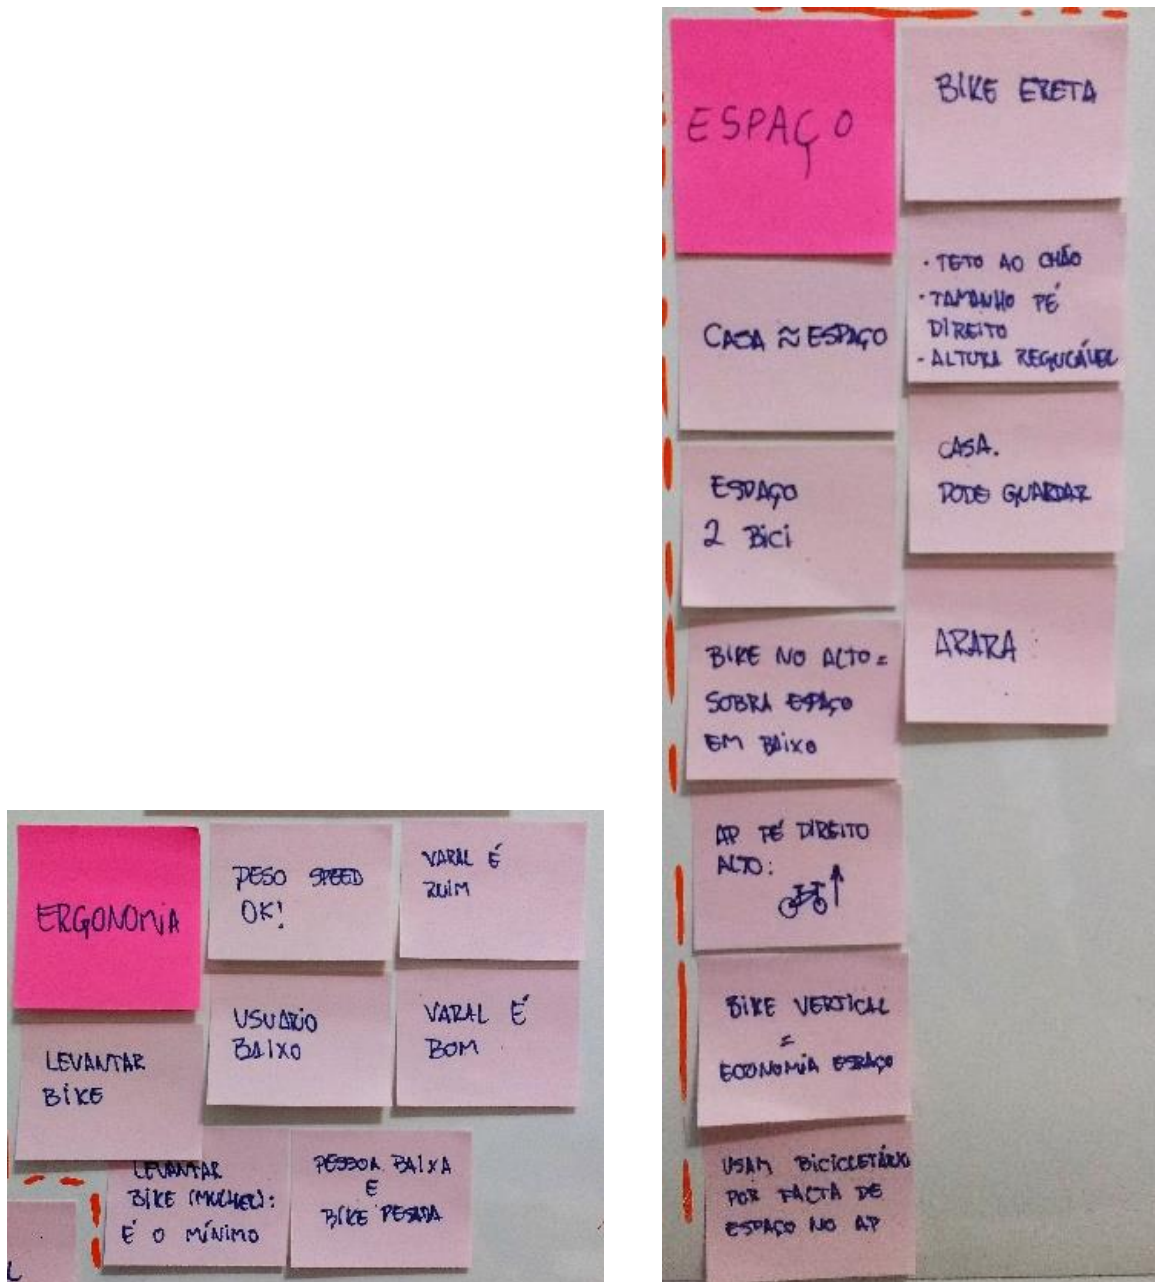 ERGONOMIA
LEVANTAR
BIKE
PESO SPEED
OK!
USUARIO
BAIXO
VARAL É
RUIM
VARAL É
BOM
LEVANTAR
BIKE (MULHER):
É O MÍNIMO
PESSOA BAIXA
E
BIKE PESADA
L
ESPAÇO
CASA ≈ ESPAÇO
ESPAÇO
2 Bici
BIKE NO ALTO =
SOBRA ESPAÇO
EM BAIXO
AP PÉ DIREITO
ALTO:
BIKE VERTICAL
=
ECONOMIA ESPAÇO
USAM BICICLETÁRIO
POR FALTA DE
ESPAÇO NO AP
BIKE ERETA
· TETO AO CHÃO
· TAMANHO PÉ
DIREITO
- ALTURA REGULÁVEL
CASA.
PODE GUARDAR
ARARA